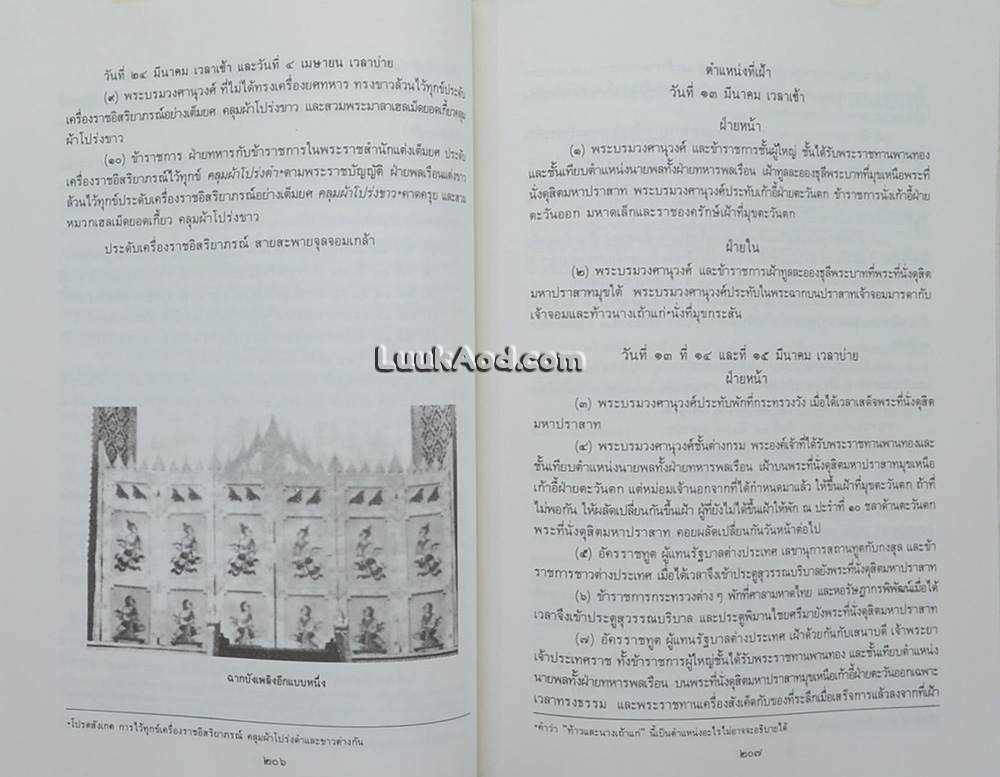 วันที่ ๒๔ มีนาคม เวลาเช้า และวันที่ ๔ เมษายน เวลาบ่าย
(๙) พระบรมวงศานุวงศ์ ที่ไม่ได้ทรงเครื่องยศทหาร ทรงขาวล้วนไว้ทุกข์ประดับ
เครื่องราชอิสริยาภรณ์อย่างเต็มยศ คลุมผ้าโปร่งขาว และสวมพระมาลาเฮลเม็ดยอดเกี้ยวคลุม
ผ้าโปร่งขาว
(๑๐) ข้าราชการ ฝ่ายทหารกับข้าราชการในพระราชสำนักแต่งเต็มยศ ประดับ
เครื่องราชอิสริยาภรณ์ไว้ทุกข์ คลุมผ้าโปร่งดำ*ตามพระราชบัญญัติ ฝ่ายพลเรือนแต่งขาว
ล้วนไว้ทุกข์ประดับเครื่องราชอิสริยาภรณ์อย่างเต็มยศ คลุมผ้าโปร่งขาว*คาดครุย และสวม
หมวกเฮลเม็ดยอดเกี้ยว คลุมผ้าโปร่งขาว
ประดับเครื่องราชอิสริยาภรณ์ สายสะพายจุลจอมเกล้า
ฉากบังเพลิงอีกแบบหนึ่ง
*โปรดสังเกต การไว้ทุกข์เครื่องราชอิสริยาภรณ์ คลุมผ้าโปร่งดำและขาวต่างกัน
๒๐๖
LuukAod.com
ตำแหน่งที่เฝ้า
วันที่ ๑๓ มีนาคม เวลาเช้า
ฝ่ายหน้า
(๑) พระบรมวงศานุวงศ์ และข้าราชการชั้นผู้ใหญ่ ชั้นได้รับพระราชทานพานทอง
และชั้นเทียบตำแหน่งนายพลทั้งฝ่ายทหารพลเรือน เฝ้าทูลละอองธุลีพระบาทที่มุขเหนือพระที่
นั่งดุสิตมหาปราสาท พระบรมวงศานุวงศ์ประทับเก้าอี้ฝ่ายตะวันตก ข้าราชการนั่งเก้าอี้ฝ่าย
ตะวันออก มหาดเล็กและราชองครักษ์เฝ้าที่มุขตะวันตก
ฝ่ายใน
(๒) พระบรมวงศานุวงศ์ และข้าราชการเฝ้าทูลละอองธุลีพระบาทที่พระที่นั่งดุสิต
มหาปราสาทมุขใต้ พระบรมวงศานุวงศ์ประทับในพระฉากบนปราสาทเจ้าจอมมารดากับ
เจ้าจอมและท้าวนางเถ้าแก่*นั่งที่มุขกระสัน
วันที่ ๑๓ ที่ ๑๔ และที่ ๑๕ มีนาคม เวลาบ่าย
ฝ่ายหน้า
(๓) พระบรมวงศานุวงศ์ประทับพักที่กระทรวงวัง เมื่อได้เวลาเสด็จพระที่นั่งดุสิต
มหาปราสาท
(๔) พระบรมวงศานุวงศ์ชั้นต่างกรม พระองค์เจ้าที่ได้รับพระราชทานพานทองและ
ชั้นเทียบตำแหน่งนายพลทั้งฝ่ายทหารพลเรือน เฝ้าบนพระที่นั่งดุสิตมหาปราสาทมุขเหนือ
เก้าอี้ฝ่ายตะวันตก แต่หม่อมเจ้านอกจากที่ได้กำหนดมาแล้ว ให้ขึ้นเฝ้าที่มุขตะวันตก ถ้าที่
ไม่พอกัน ให้ผลัดเปลี่ยนกันขึ้นเฝ้า ผู้ที่ยังไม่ได้ขึ้นเฝ้าให้พัก ณ ปะรำที่ ๑๐ ชลาด้านตะวันตก
พระที่นั่งดุสิตมหาปราสาท คอยผลัดเปลี่ยนกันวันหน้าต่อไป
(๕) อัครราชทูต ผู้แทนรัฐบาลต่างประเทศ เลขานุการสถานทูตกับกงสุล และข้า
ราชการชาวต่างประเทศ เมื่อได้เวลาจึงเข้าประตูสุวรรณบริบาลยังพระที่นั่งดุสิตมหาปราสาท
(๖) ข้าราชการกระทรวงต่าง ๆ พักที่ศาลามหาดไทย และหอรัษฎากรพิพัฒน์เมื่อได้
เวลาจึงเข้าประตูสุวรรณบริบาล และประตูพิมานไชยศรีมายังพระที่นั่งดุสิตมหาปราสาท
(๗) อัครราชทูต ผู้แทนรัฐบาลต่างประเทศ เฝ้าด้วยกันกับเสนาบดี เจ้าพระยา
เจ้าประเทศราช ทั้งข้าราชการผู้ใหญ่ชั้นได้รับพระราชทานพานทอง และชั้นเทียบตำแหน่ง
นายพลทั้งฝ่ายทหารพลเรือน บนพระที่นั่งดุสิตมหาปราสาทมุขเหนือเก้าอี้ฝ่ายตะวันออกเฉพาะ
เวลาทรงธรรม และพระราชทานเครื่องสังเค็ดกับของที่ระลึกเมื่อเสร็จการแล้วลงจากที่เฝ้า
*คำว่า "ท้าวและนางเถ้าแก่" นี้เป็นตำแหน่งอะไรไม่อาจจะอธิบายได้
๒๐๗